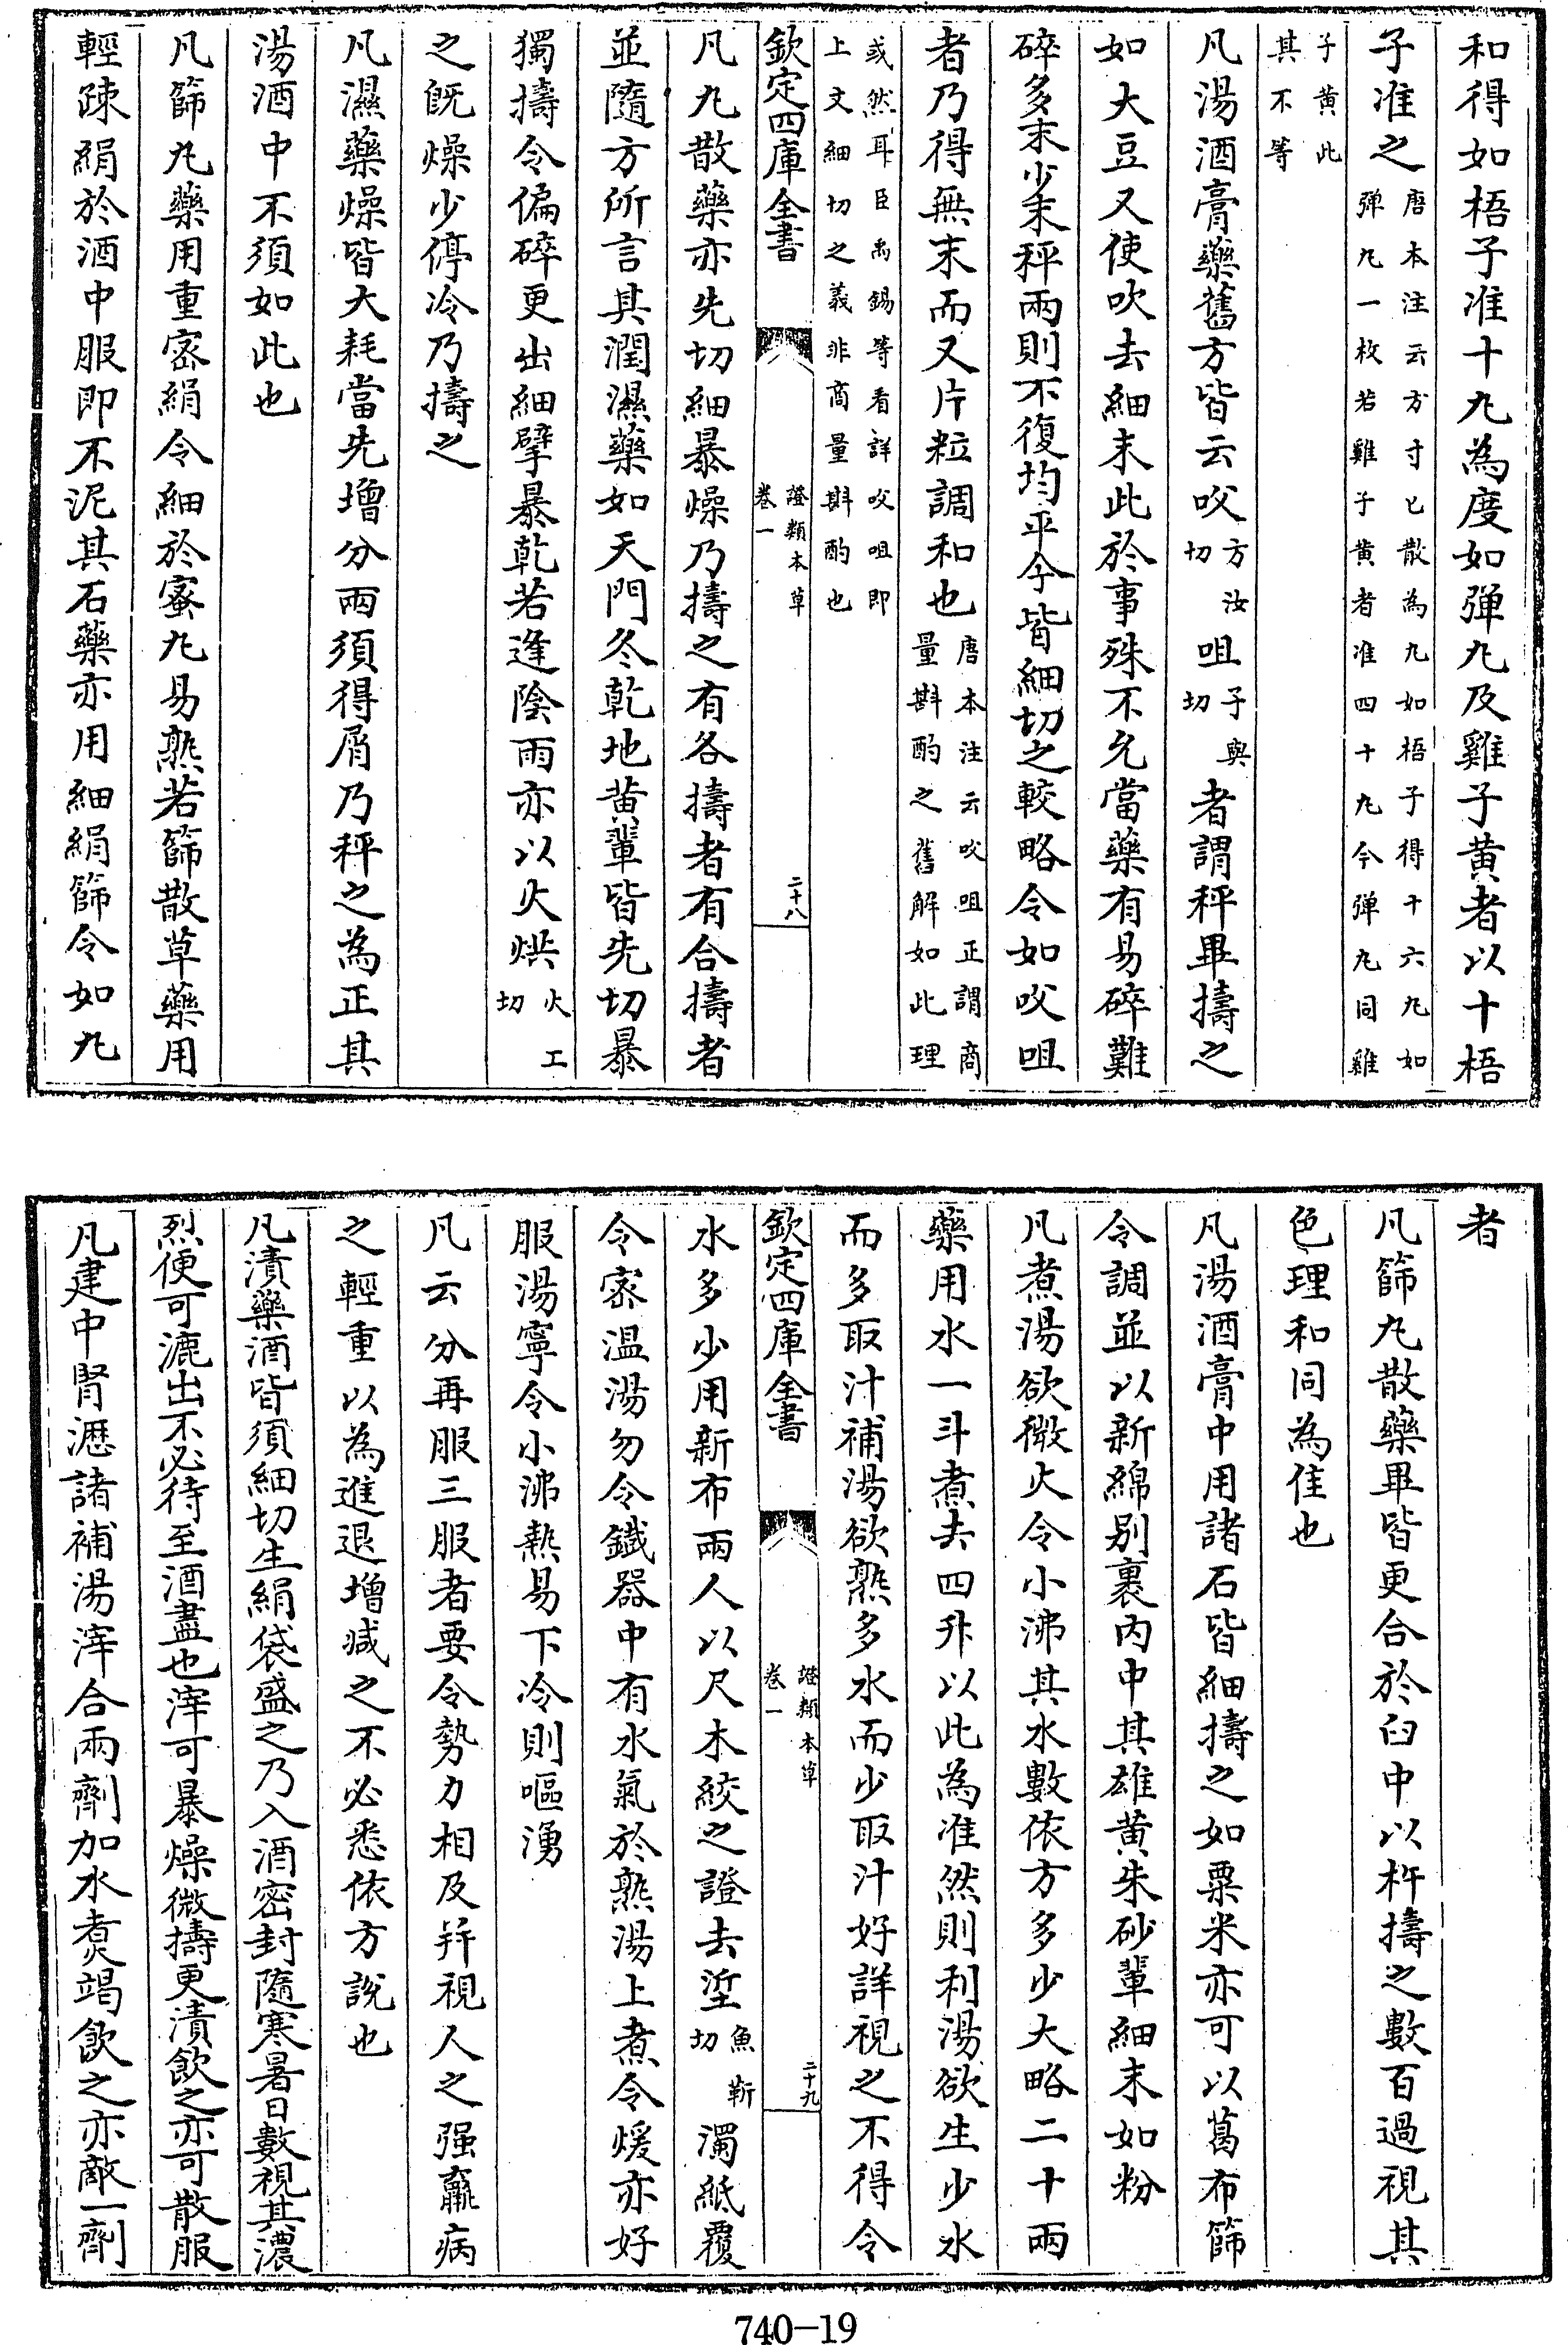 和得如梧子准十丸為度如弹丸及雞子黄者以十梧
子准之唐本注云方寸匕散為丸如梧子得十六丸如
弹丸一枚若雞子黄者准四十丸今弹丸同雞
子黄此
其不等
凡湯酒膏藥舊方皆云㕮方汝切咀子與切者謂秤畢擣之
如大豆又使吹去細末此於事殊不允當藥有易碎難
碎多末少末秤兩則不復均平今皆細切之較略令如㕮咀
者乃得無末而又片粒調和也唐本注云㕮咀正謂商
量斟酌之舊解如此理
或然耳臣禹錫等看詳㕮咀即
上文細切之義非商量斟酌也
欽定四庫全書
證類本草
卷一
二十八
凡丸散藥亦先切細暴燥乃擣之有各擣者有合擣者
並隨方所言其潤濕藥如天門冬乾地黄輩皆先切暴
獨擣令偏碎更出細擘暴乾若逢陰雨亦以火烘火工切
之既燥少停冷乃擣之
凡濕藥燥皆大耗當先增分兩須得屑乃秤之為正其
湯酒中不須如此也
凡篩丸藥用重宻絹令細於蜜丸易熟若篩散草藥用
輕疎絹於酒中服即不泥其石藥亦用細絹篩令如丸
者
凡篩丸散藥畢皆更合於臼中以杵擣之數百過視其
色理和同為佳也
凡湯酒膏中用諸石皆細擣之如粟米亦可以葛布篩
令調並以新綿别裹内中其雄黄朱砂輩細末如粉
凡煮湯欲微火令小沸其水數依方多少大略二十兩
藥用水一斗煮去四升以此為准然則利湯欲生少水
而多取汁補湯欲熟多水而少取汁好詳視之不得令
欽定四庫全書
證類本草
卷一
二十九
水多少用新布兩人以尺木絞之證去垽魚靳切濁紙覆
令宻温湯勿令鐵器中有水氣於熟湯上煮令煖亦好
服湯寧令小沸熱易下冷則嘔湧
凡云分再服三服者要令勢力相及并視人之强羸病
之輕重以為進退增减之不必悉依方說也
凡漬藥酒皆須細切生絹袋盛之乃入酒密封隨寒暑日數視其濃
烈便可漉出不必待至酒盡也滓可暴燥微擣更漬飲之亦可散服
凡建中腎瀝諸補湯滓合兩劑加水煮竭飲之亦敵一劑
740-19